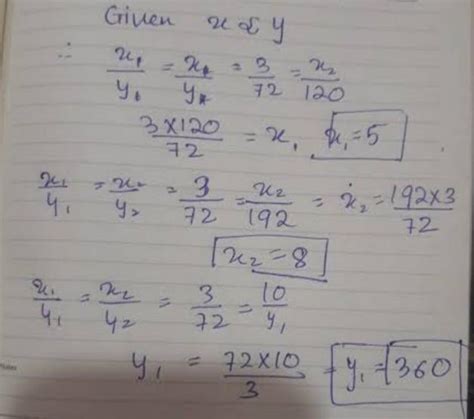 Given x ∝ y
∴ x₁/y₁ = x₂/y₂ = 3/72 = x₂/120
3×120/72 = x₁ x₁=5
x₁/y₁ = x₂/y₂ = 3/72 = x₂/192 = x₂ = 192×3/72
x₂ = 8
x₁/y₁ = x₂/y₂ = 3/72 = 10/y₁
y₁ = 72×10/3 = y₁ = 360